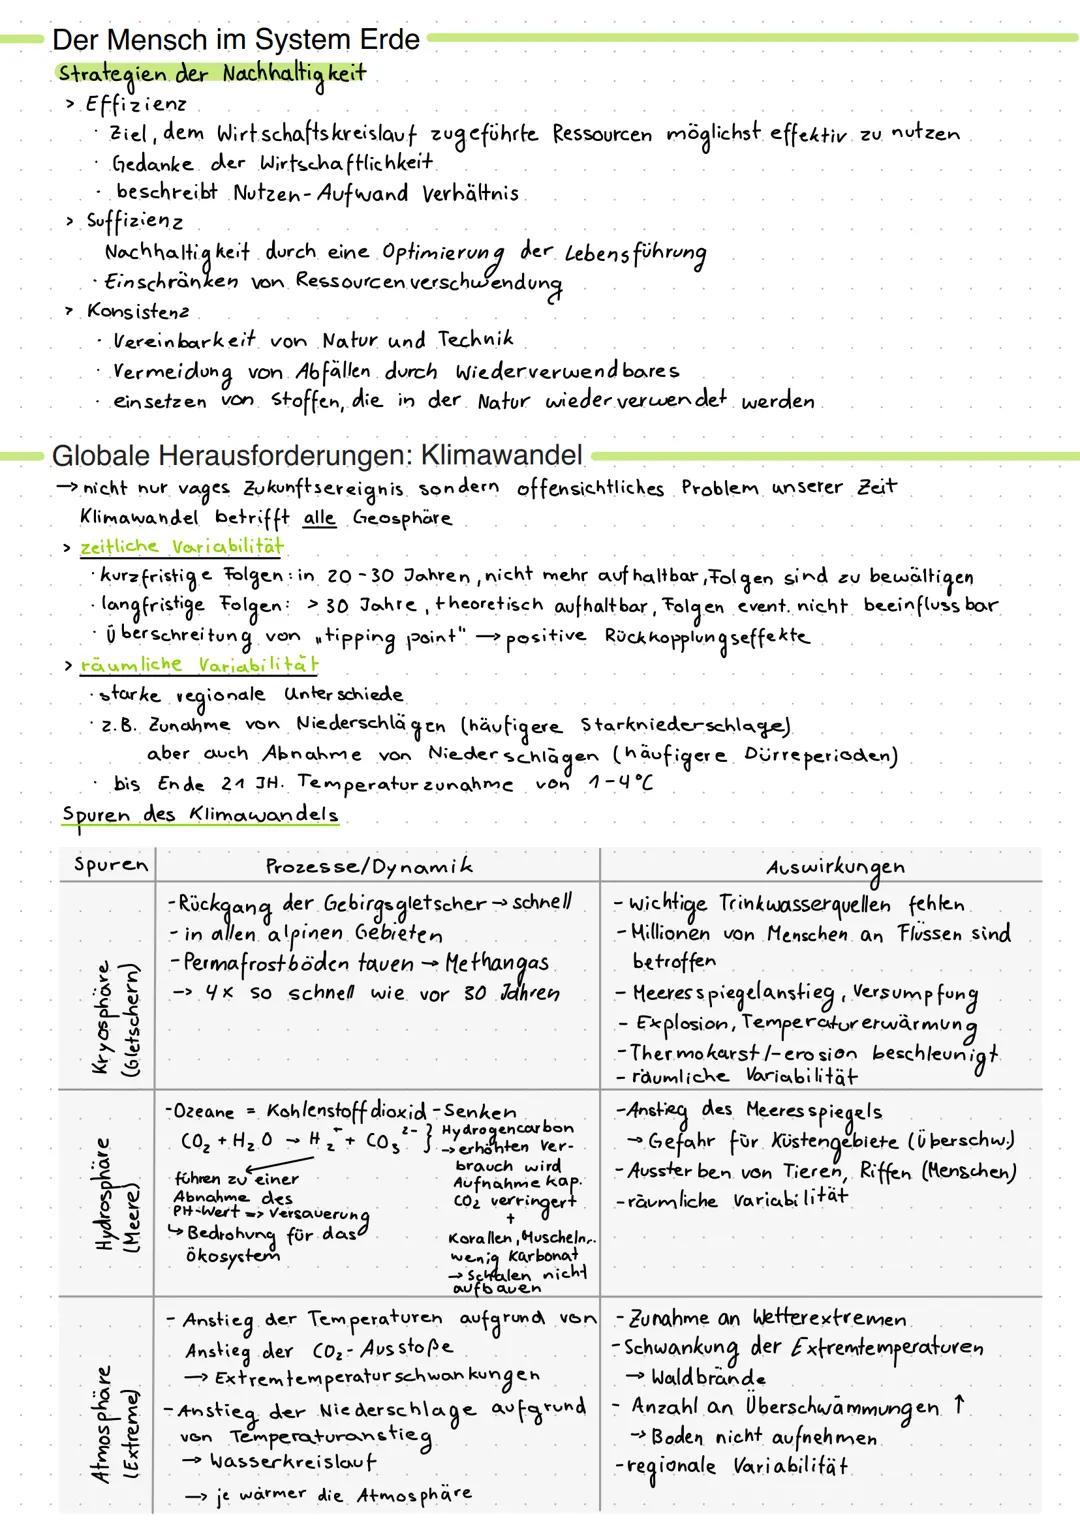 Der Mensch im System Erde
Strategien der Nachhaltigkeit
> Effizienz
· Ziel, dem Wirtschaftskreislauf zugeführte Ressourcen möglichst effektiv zu nutzen
· Gedanke der Wirtschaftlichkeit
· beschreibt Nutzen-Aufwand Verhältnis
> Suffizienz
Nachhaltigkeit durch eine Optimierung der Lebensführung
· Einschränken von Ressourcenverschwendung
> Konsistenz
· Vereinbarkeit von Natur und Technik
· Vermeidung von Abfällen durch Wiederverwendbares
· einsetzen von Stoffen, die in der Natur wiederverwendet werden
Globale Herausforderungen: Klimawandel
→ nicht nur vages Zukunftsereignis sondern offensichtliches Problem unserer Zeit
Klimawandel betrifft alle Geosphäre
> zeitliche Variabilität
· kurzfristige Folgen: in 20-30 Jahren, nicht mehr aufhaltbar, Folgen sind zu bewältigen
· langfristige Folgen: > 30 Jahre, theoretisch aufhaltbar, Folgen event. nicht beeinflussbar
· Überschreitung von „tipping point" → positive Rückkopplungseffekte
> räumliche Variabilität
· starke regionale Unterschiede
· z.B. Zunahme von Niederschlägen (häufigere Starkniederschlage)
aber auch Abnahme von Niederschlägen (häufigere Dürreperioden)
· bis Ende 21 JH. Temperaturzunahme von 1-4°C
Spuren des Klimawandels
Spuren
Prozesse/Dynamik
Auswirkungen
Kryosphäre
(Gletschern)
- Rückgang der Gebirgsgletscher → schnell
- in allen alpinen Gebieten
- Permafrostböden tauen → Methangas
-> 4x so schnell wie vor 30 Jahren
- wichtige Trinkwasserquellen fehlen
- Millionen von Menschen an Flüssen sind
betroffen
- Meeresspiegelanstieg, Versumpfung
- Explosion, Temperaturerwärmung
- Thermokarst/-erosion beschleunigt
- räumliche Variabilität
Hydrosphäre
(Meere)
- Ozeane = Kohlenstoffdioxid-Senken
CO₂ + H₂O → H₂⁺ + CO₃²⁻ }
führen zu einer
Abnahme des
PH-Wert => Versauerung
↳ Bedrohung für das
ökosystem
Hydrogencarbon
→ erhöhten Ver-
brauch wird
Aufnahme kap.
CO₂ verringert
+
Korallen, Muscheln,..
wenig Karbonat
→ Schalen nicht
aufbauen
- Anstieg des Meeresspiegels
→ Gefahr für Küstengebiete (Überschw.)
- Aussterben von Tieren, Riffen (Menschen)
- räumliche Variabilität
Atmosphäre
(Extreme)
- Anstieg der Temperaturen aufgrund von
Anstieg der CO₂-Ausstoße
→ Extremtemperaturschwankungen
- Anstieg der Niederschlage aufgrund
von Temperaturanstieg
→ Wasserkreislauf
→ je wärmer die Atmosphäre
- Zunahme an Wetterextremen
- Schwankung der Extremtemperaturen
→ Waldbrände
- Anzahl an Überschwämmungen ↑
→ Boden nicht aufnehmen
- regionale Variabilität